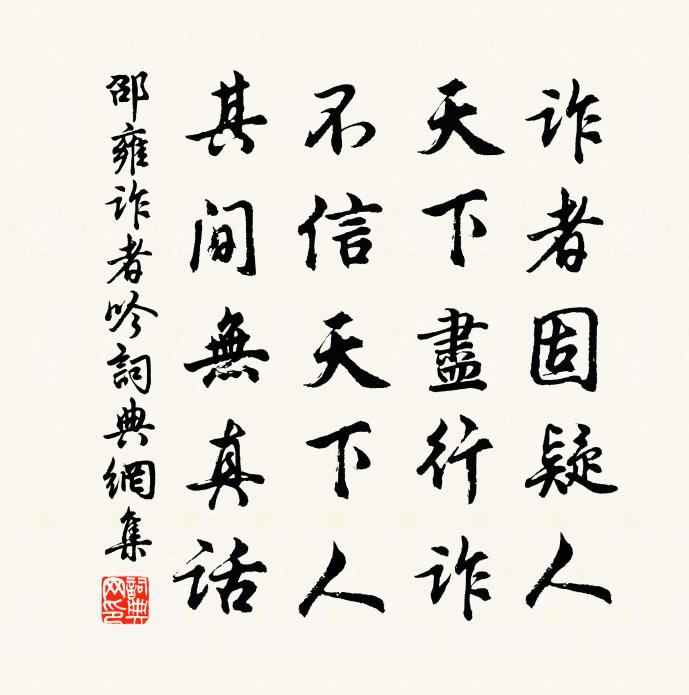 詐者固疑人
天下盡行詐
不信天下人
其間無真話
邵雍詐者吟詞典網集
詞典網印